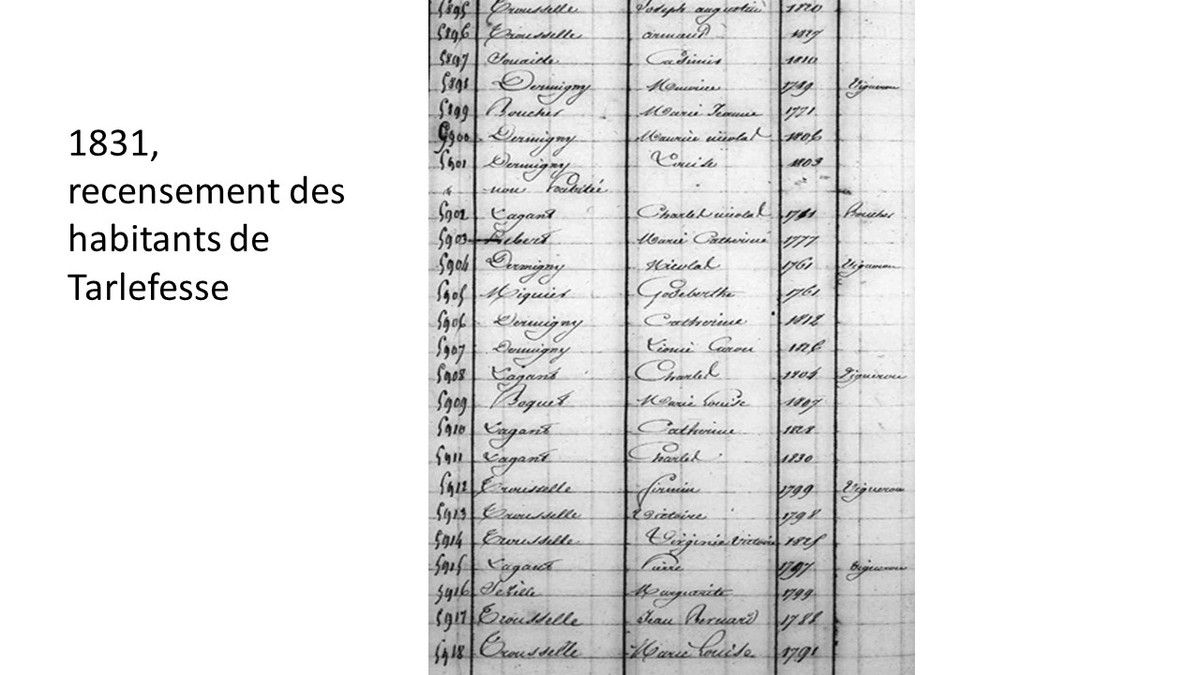 1831,
recensement des
habitants de
Tarlefesse
5895 Trousselle Joseph augustin 1820
5896 Trousselle armand 1827
5897 Casimir
5898 Dermigny Maurice Vigneron
5899 Boucher Marie Jeanne 1771
5900 Dermigny Maurice nicolas 1806
5901 Dermigny Louise 1809
non habitée
5902 Lagant Charles nicolas
5903 Lebert Marie Catherine 1777
5904 Dermigny Nicolas 1761 Vigneron
5905 Godeberthe 1761
5906 Dermigny Catherine 1812
5907 Dermigny 1826
5908 Lagant Charles 1804 Vigneron
5909 Boquet Marie Louise 1807
5910 Lagant Catherine 1828
5911 Lagant Charles 1830
5912 Trousselle firmin 1799 Vigneron
5913 Trousselle Victoire 1798
5914 Trousselle Virginie Victoire 1825
5915 Lagant Pierre 1797 Vigneron
5916 Marguerite 1799
5917 Trousselle Jean Bernard 1788
5918 Trousselle Marie Louise 1791